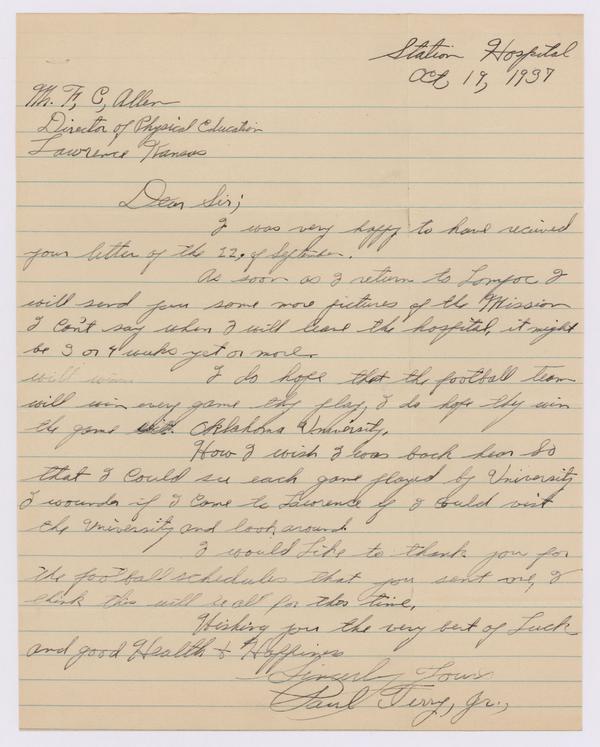 Station Hospital
Oct, 19, 1937
Mr. F, C, Allen
Director of Physical Education
Lawrence Kansas
Dear Sir;
I was very happy to have recived
your letter of the 22, of September.
As soon as I return to Lompoc I
will send you some more pictures of the Mission
I Can't say when I will leave the hospital, it might
be 3 or 4 weeks yet or more.
I do hope that the football team
will win every game they play, I do hope they win
the game with Oklahoma University.
How I wish I was back hear So
that I Could see each game played by University
I wounder if I Come to Lawrence if I Could visit
the University and look around.
I would Like to thank you for
the football schedules that you sent me, I
think this will be all for this time,
Wishing you the very best of Luck
and good Health & Happiness
Sincerly Yours
Paul Terry, Jr.,